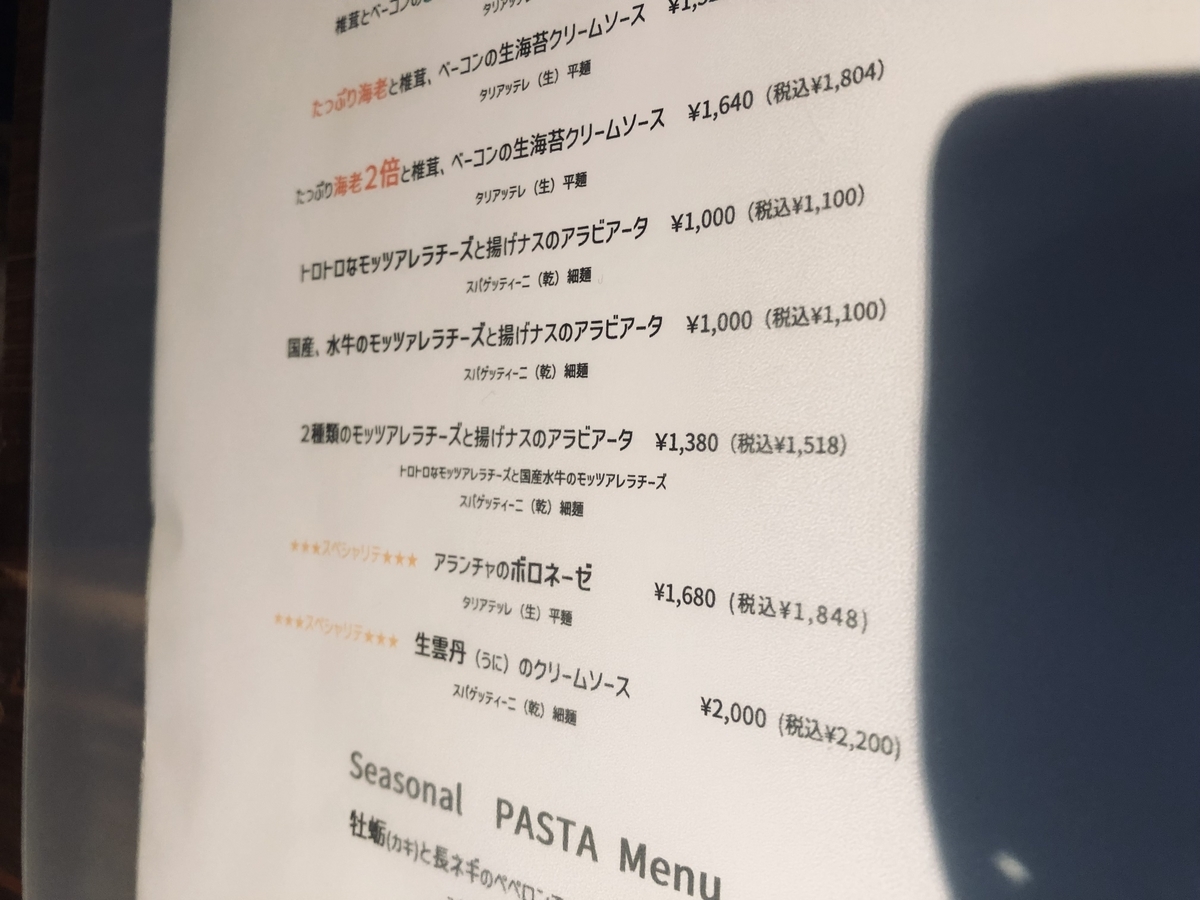 椎茸とベーコンの
タリアッテ
たっぷり海老と椎茸、ベーコンの生海苔クリームソース
タリアッテレ（生）平麺
たっぷり海老2倍と椎茸、ベーコンの生海苔クリームソース ¥1,640（税込¥1,804）
タリアッテレ（生）平麺
トロトロなモッツアレラチーズと揚げナスのアラビアータ ¥1,000（税込¥1,100）
スパゲッティーニ（乾）細麺
国産、水牛のモッツァレラチーズと揚げナスのアラビアータ ¥1,000（税込¥1,100）
スパゲッティーニ（乾）細麺
2種類のモッツアレラチーズと揚げナスのアラビアータ ¥1,380（税込¥1,518）
トロトロなモッツアレラチーズと国産水牛のモッツアレラチーズ
スパゲッティーニ（乾）細麺
★★★スペシャリテ★★★ アランチャのボロネーゼ ¥1,680 (税込¥1,848)
タリアテッレ（生）平麺
★★★スペシャリテ★★★ 生雲丹（うに）のクリームソース ¥2,000 (税込¥2,200)
スパゲッティーニ（乾）細麺
Seasonal PASTA Menu
牡蛎(カキ)と長ネギのペペロン